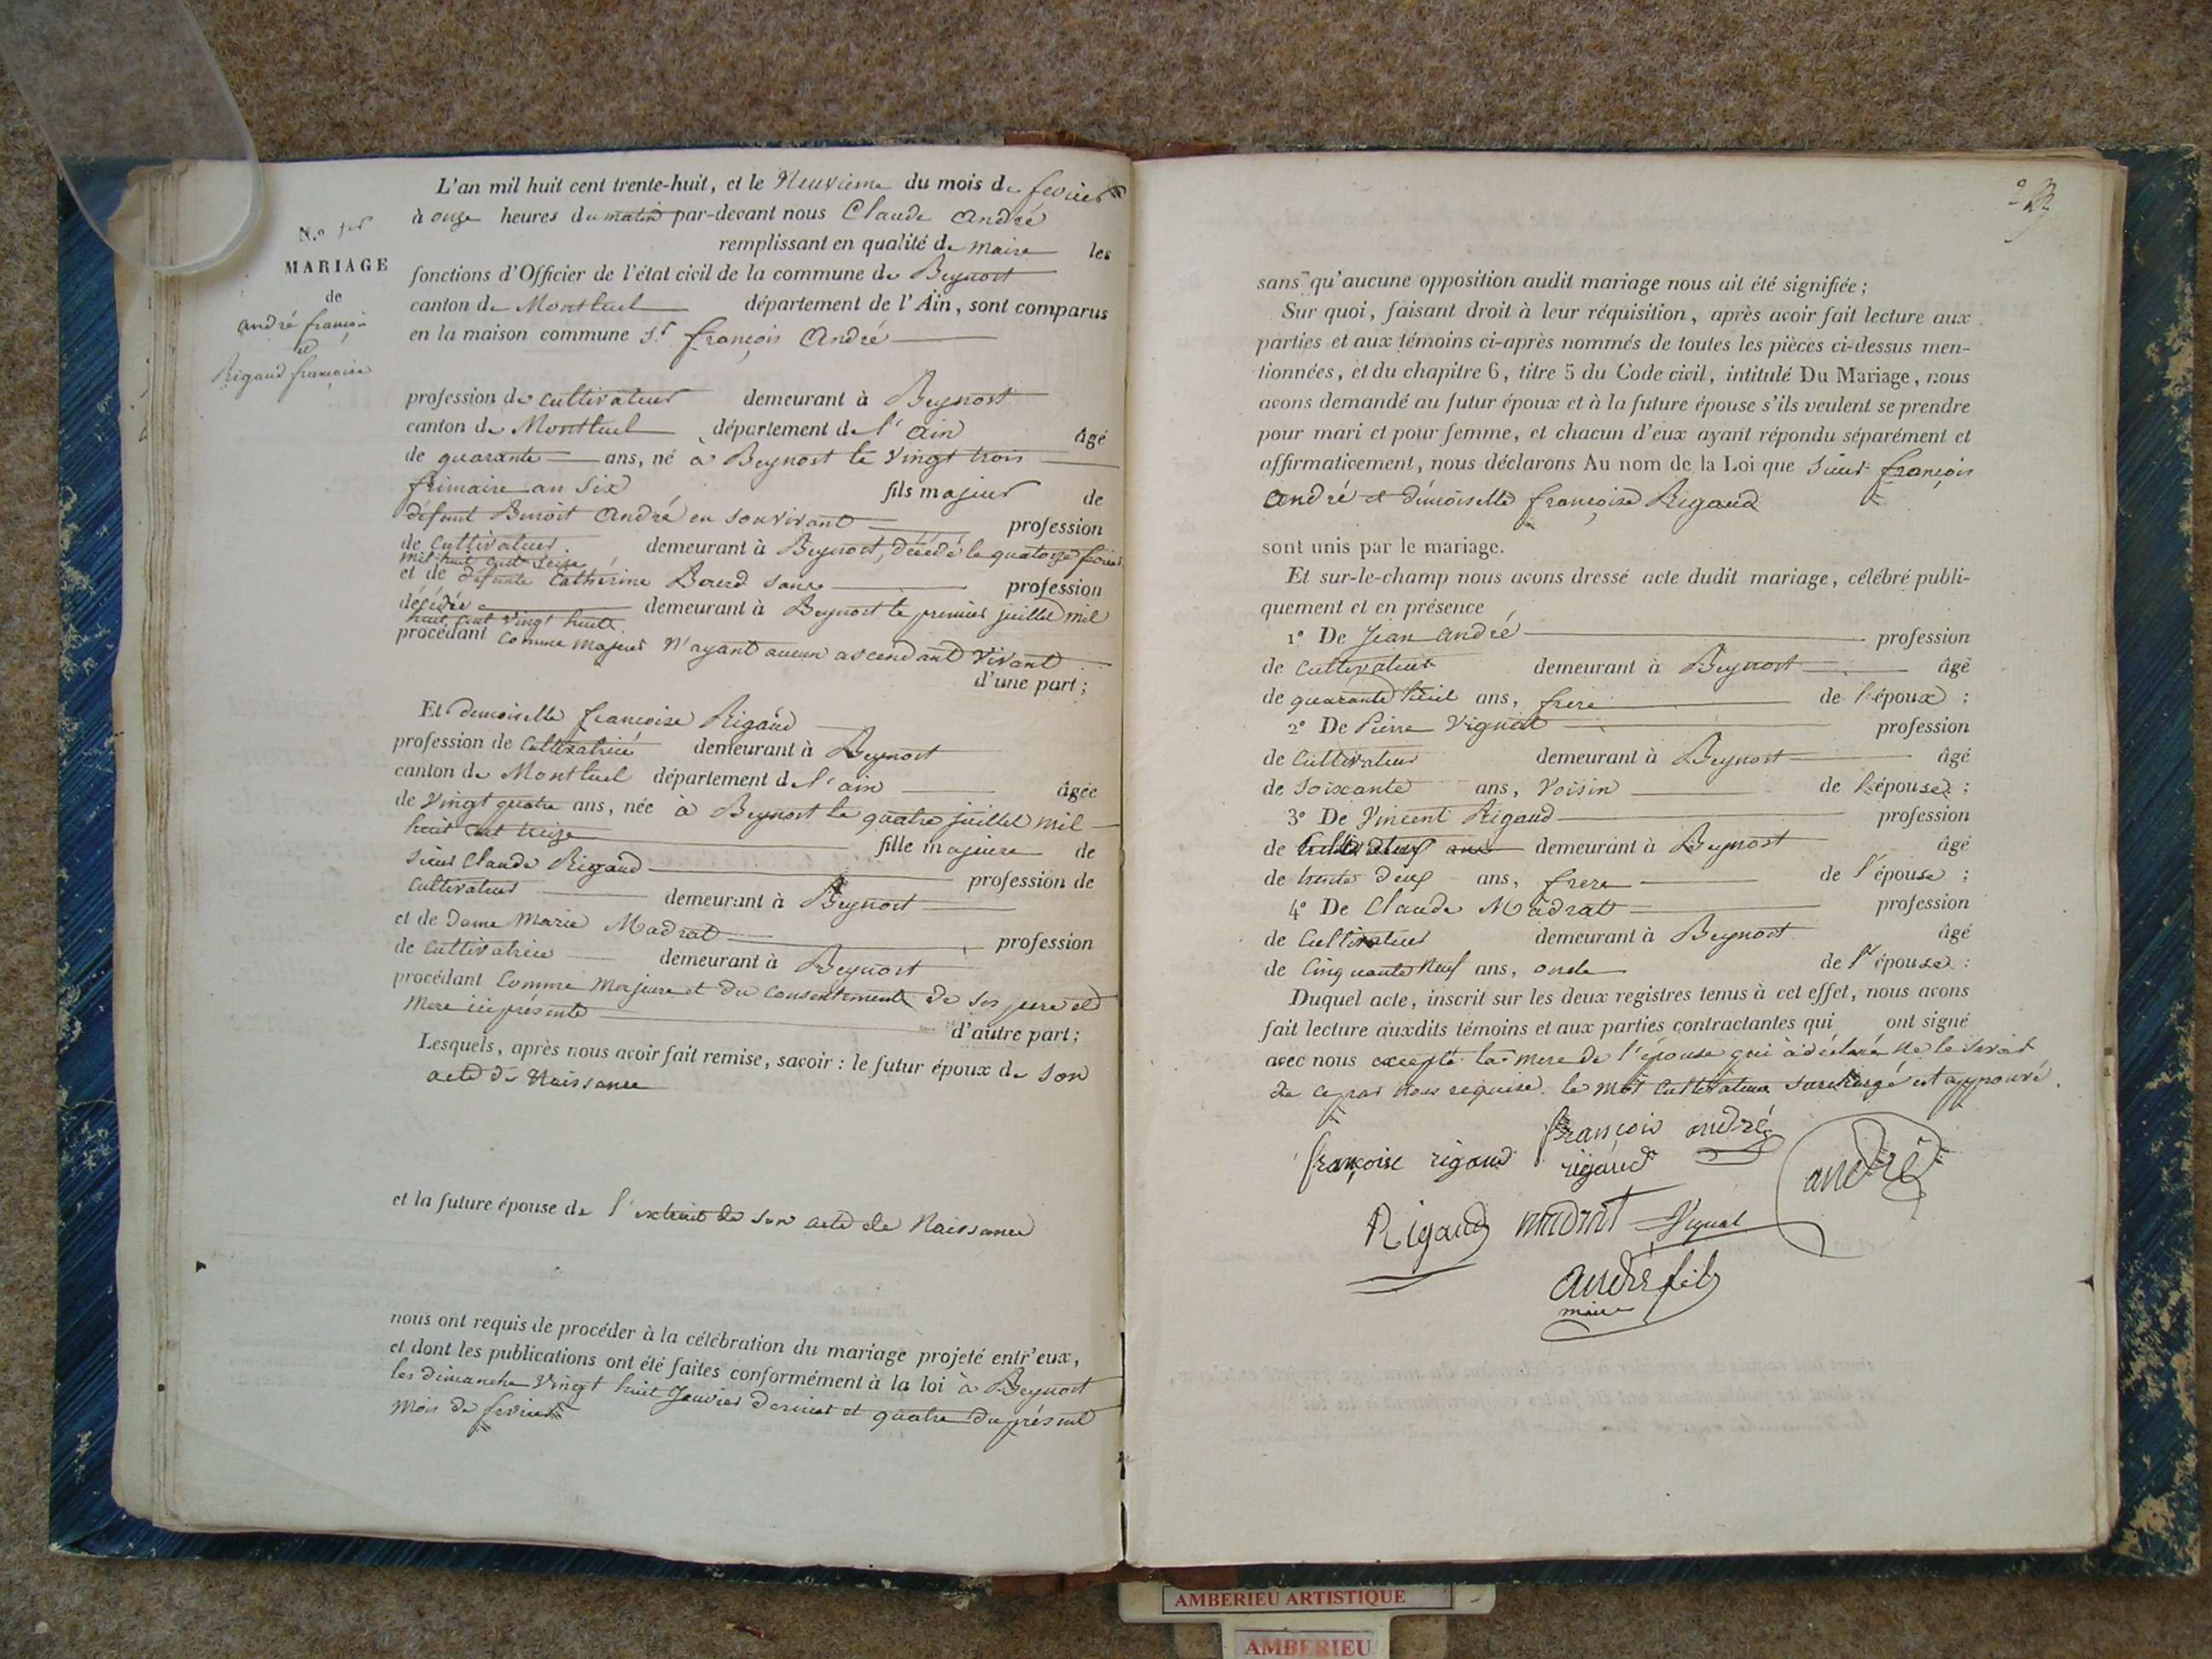 L'an mil huit cent trente-huit, et le Neuvieme du mois de fevrier
à onze heures du matin par-devant nous Claude André
remplissant en qualité de maire les
fonctions d'Officier de l'état civil de la commune de Beynost
canton de Montluel département de l'Ain, sont comparus
en la maison commune Sr. françois André
N.o
MARIAGE
de
andré françois
et
Rigaud françoise
profession de cultivateur demeurant à Beynost
canton de Montluel département de l'ain âgé
de quarante ans, né à Beynost le Vingt trois
frimaire an Six fils majeur de
défunt Benoit André en son vivant profession
de Cultivateur. demeurant à Beynost, décédé le quatorze fevrier
mil huit cent seize
et de défunte Catherine sans profession
décédée demeurant à Beynost le premier juillet mil
huit cent vingt huit
procédant comme majeur N'ayant aucun ascendant vivant
d'une part;
Et demoiselle françoise Rigaud
profession de Cultivatrice demeurant à Beynost
canton de Montluel département de l'ain âgée
de Vingt quatre ans, née à Beynost le quatre juillet mil
huit cent treize fille majeure de
Sieur Claude Rigaud profession de
Cultivateur demeurant à Beynost
et de Dame Marie Madrat profession
de cultivatrice demeurant à Beynost
procédant Comme Majeure et du consentement de ses pere et
Mere ici présents d'autre part;
Lesquels, après nous avoir fait remise, savoir: le futur époux de son
acte de Naissance
et la future épouse de l'extrait de son acte de Naissance
nous ont requis de procéder à la célébration du mariage projeté entr'eux,
et dont les publications ont été faites conformément à la loi à Beynost
les dimanche Vingt huit Janvier dernier et quatre du présent
Mois de fevrier
sans qu'aucune opposition audit mariage nous ait été signifiée;
Sur quoi, faisant droit à leur réquisition, après avoir fait lecture aux
parties et aux témoins ci-après nommés de toutes les pièces ci-dessus men-
tionnées, et du chapitre 6, titre 5 du Code civil, intitulé Du Mariage, nous
avons demandé au futur époux et à la future épouse s'ils veulent se prendre
pour mari et pour femme, et chacun d'eux ayant répondu séparément et
affirmativement, nous déclarons Au nom de la Loi que Sieur françois
André et démoiselle françoise Rigaud
sont unis par le mariage.
Et sur-le-champ nous avons dressé acte dudit mariage, célébré publi-
quement et en présence
1º De Jean André profession
de cultivateur demeurant à Beynost âgé
de quarante huit ans, frere de l'époux;
2º De Pierre Vignat profession
de Cultivateur demeurant à Beynost âgé
de Soixante ans, Voisin de l'épouse;
3º De Vincent Rigaud profession
de Cultivateur demeurant à Beynost âgé
de trente deux ans, frere de l'épouse;
4º De Claude Madrat profession
de Cultivateur demeurant à Beynost âgé
de Cinquante Neuf ans, oncle de l'épouse:
Duquel acte, inscrit sur les deux registres tenus à cet effet, nous avons
fait lecture auxdits témoins et aux parties contractantes qui ont signé
avec nous excepté la mere de l'épouse qui à déclaré Ne le savoir
de ce par nous requise. le mot Cultivateur surchargé est approuvé.
françois andré
françoise rigaud rigaud andré
Rigaud madrat Vignat
André fils
maire
AMBERIEU ARTISTIQUE
AMBERIEU